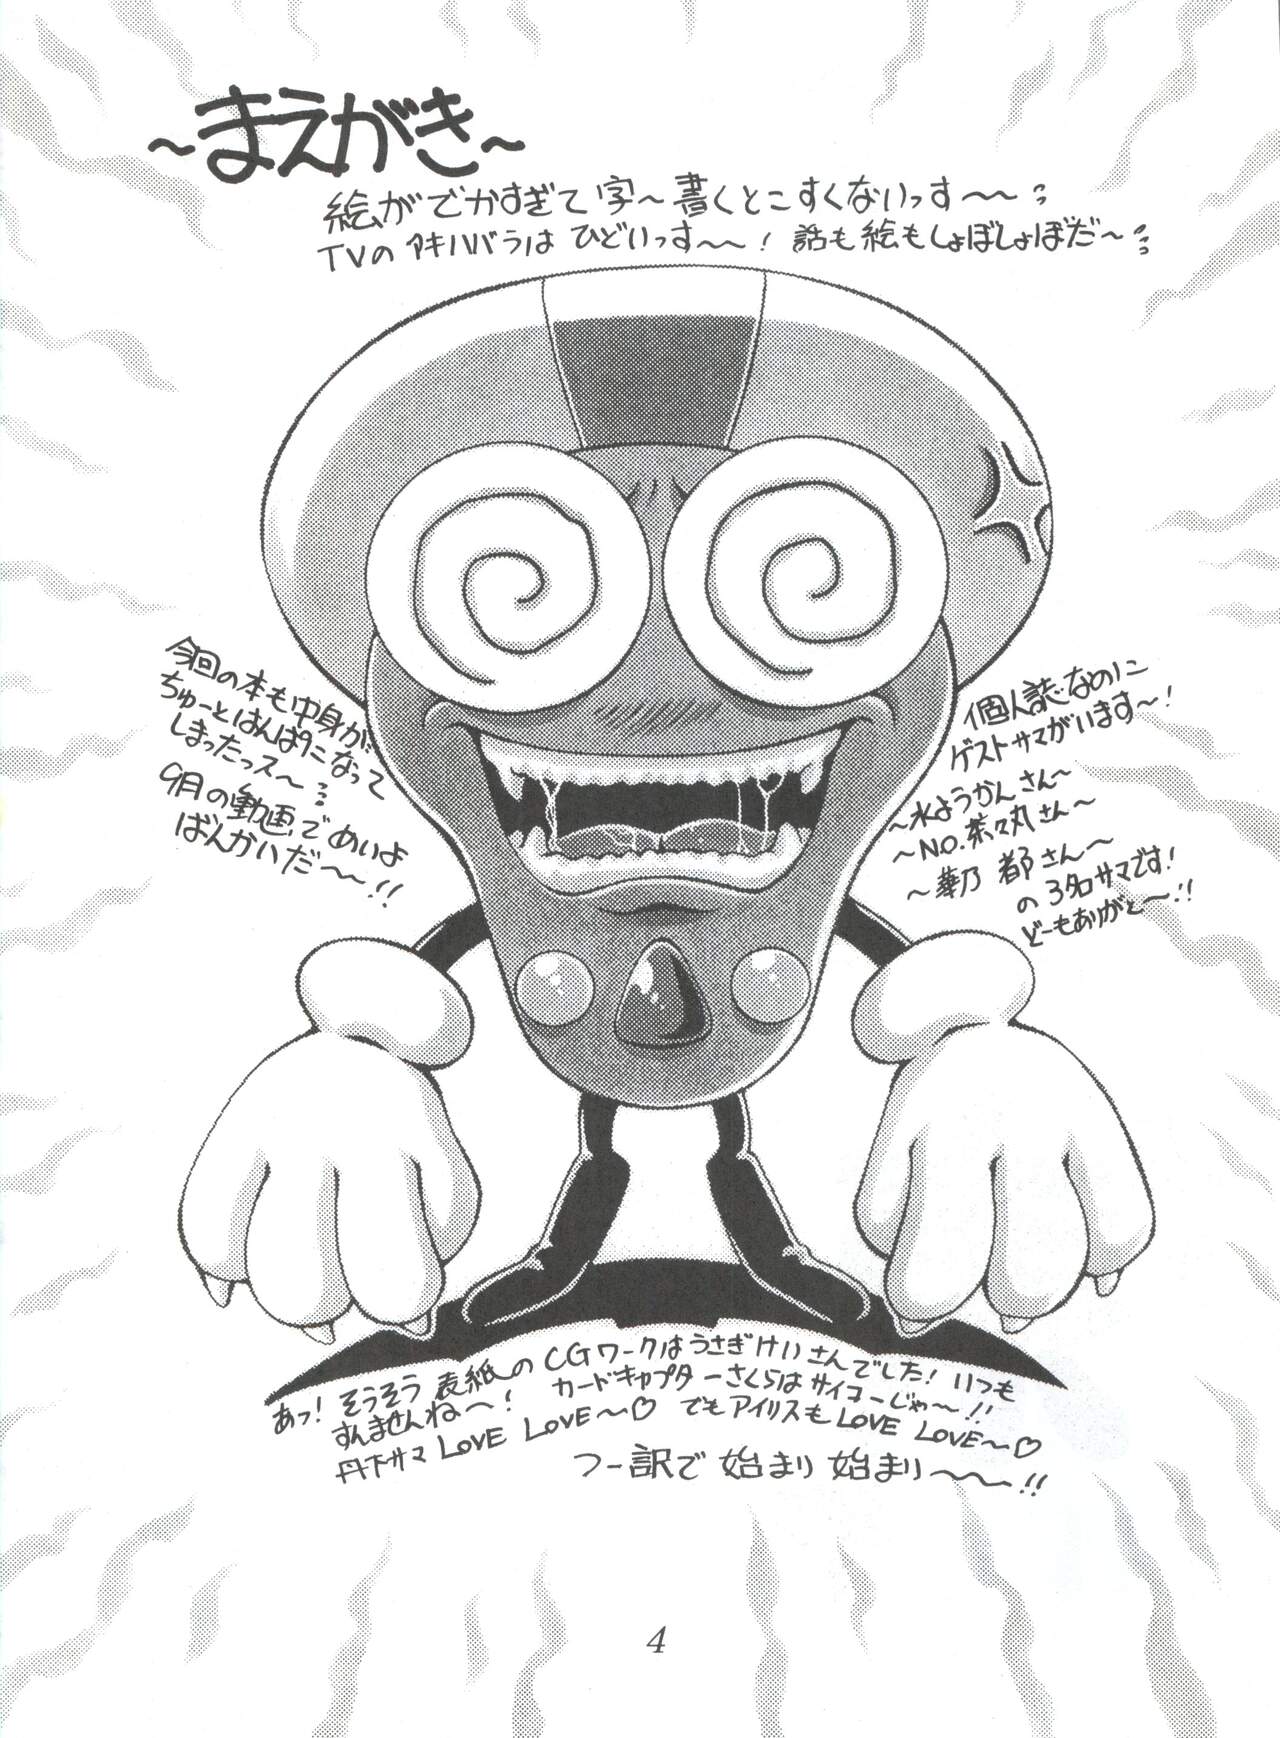 ～まえがき～
絵がでかすぎて字～書くとこすくないっす～～
TVのアキハバラはひどいっす～～！話も絵もしょぼしょぼだ～
今回の本も中身が
ちゅーとはんぱになって
しまったっス～
9月の動画でめいよ
ばんかいだ～～!!
個人誌なのに
ゲストサマがいます～！
～水ようかんさん～
～N.O.茶々丸さん～
～華乃 都さん～
の3名サマです！
どーもありがと～!!
あっ！そうそう表紙のCGワークはうさぎけいさんでした！いつも
すんませんね～！ カードキャプターさくらはサイコーじゃ～!!
丹下サマLOVE LOVE～♡ でもアイリスもLOVE LOVE～♡
つー訳で始まり始まり～～!!
4